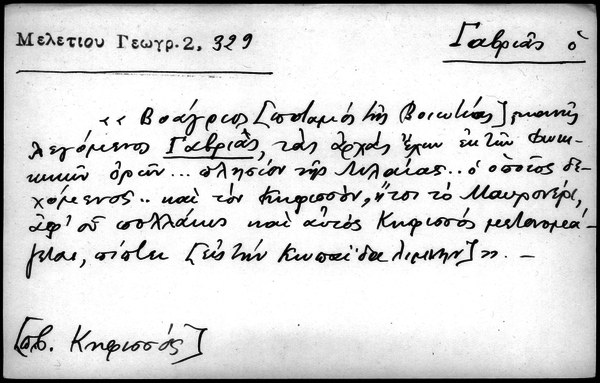 Μελετίου Γεωγρ. 2, 329
Γαβριᾶς ὁ
«Βοάγριος [ποταμός τῆς Βοιωτίας] κοινῶς
λεγόμενος Γαβριᾶς, τάς ἀρχάς ἔχων ἐκ τῶν Φωκι-
κῶν ὀρῶν... πλησίον τῆς Λιλαίας.. ὁ ὁποῖος δε-
χόμενος.. καί τόν Κηφισσόν, ἤτοι τό Μαυρονέρι,
ἀφ' οὗ πολλάκις καί αὐτός Κηφισσός μετονομά-
ζεται, πίπτει [εἰς τήν Κωπαΐδα λίμνην]». –
[πβ. Κηφισσός]